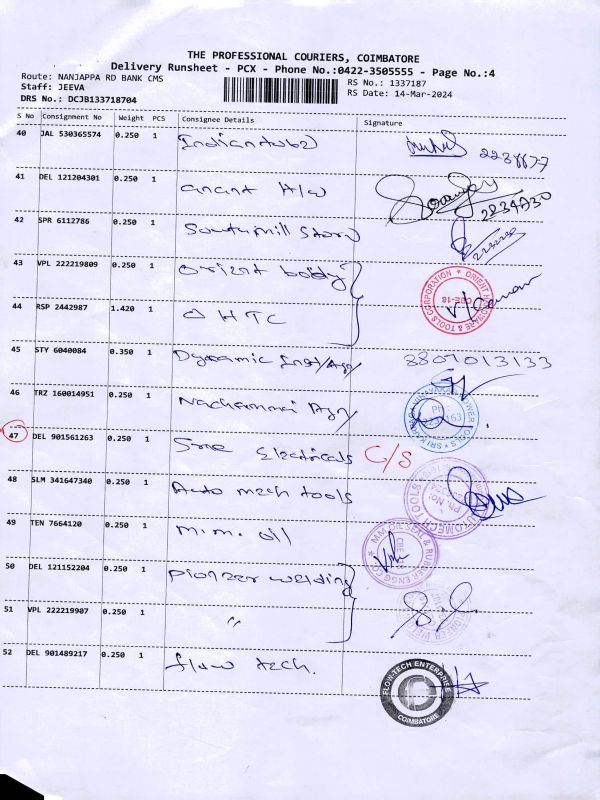 THE PROFESSIONAL COURIERS, COIMBATORE
Delivery Runsheet - PCX - Phone No.:0422-3505555 - Page No.:4
Route: NANJAPPA RD BANK CMS
Staff: JEEVA
DRS No.: DCJB133718704
RS No.: 1337187
RS Date: 14-Mar-2024
S No Consignment No Weight PCS Consignee Details Signature
40 JAL 530365574 0.250 1 Indian tubes
41 DEL 121204301 0.250 1 anant H/w
42 SPR 6112786 0.250 1 South mill Store
43 VPL 222219809 0.250 1 orient body
ORIENT HARDWARE & TOOLS CORPORATION
CBE-18
44 RSP 2442987 1.420 1 O H T C
45 STY 6040084 0.350 1 Dynamic 8807013133
46 TRZ 160014951 0.250 1 Nachammai Agy
POWER TOOLS
47 DEL 901561263 0.250 1 Sree Electricals C/S
48 SLM 341647340 0.250 1 Auto mech tools
49 TEN 7664120 0.250 1 m.m. oil
& RUBBER ENGG
50 DEL 121152204 0.250 1 pioneer welding
51 VPL 222219907 0.250 1 "
52 DEL 901489217 0.250 1 flow tech.
FLOW-TECH ENTERPRISE
COIMBATORE